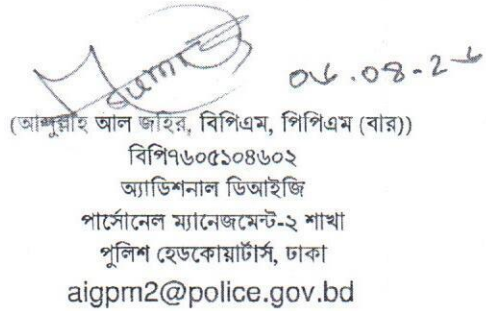 ০৬.০৪-২৬
(আব্দুল্লাহ আল জহির, বিপিএম, পিপিএম (বার))
বিপি৭৬০৫১০৪৬০২
অ্যাডিশনাল ডিআইজি
পার্সোনেল ম্যানেজমেন্ট-২ শাখা
পুলিশ হেডকোয়ার্টার্স, ঢাকা
aigpm2@police.gov.bd